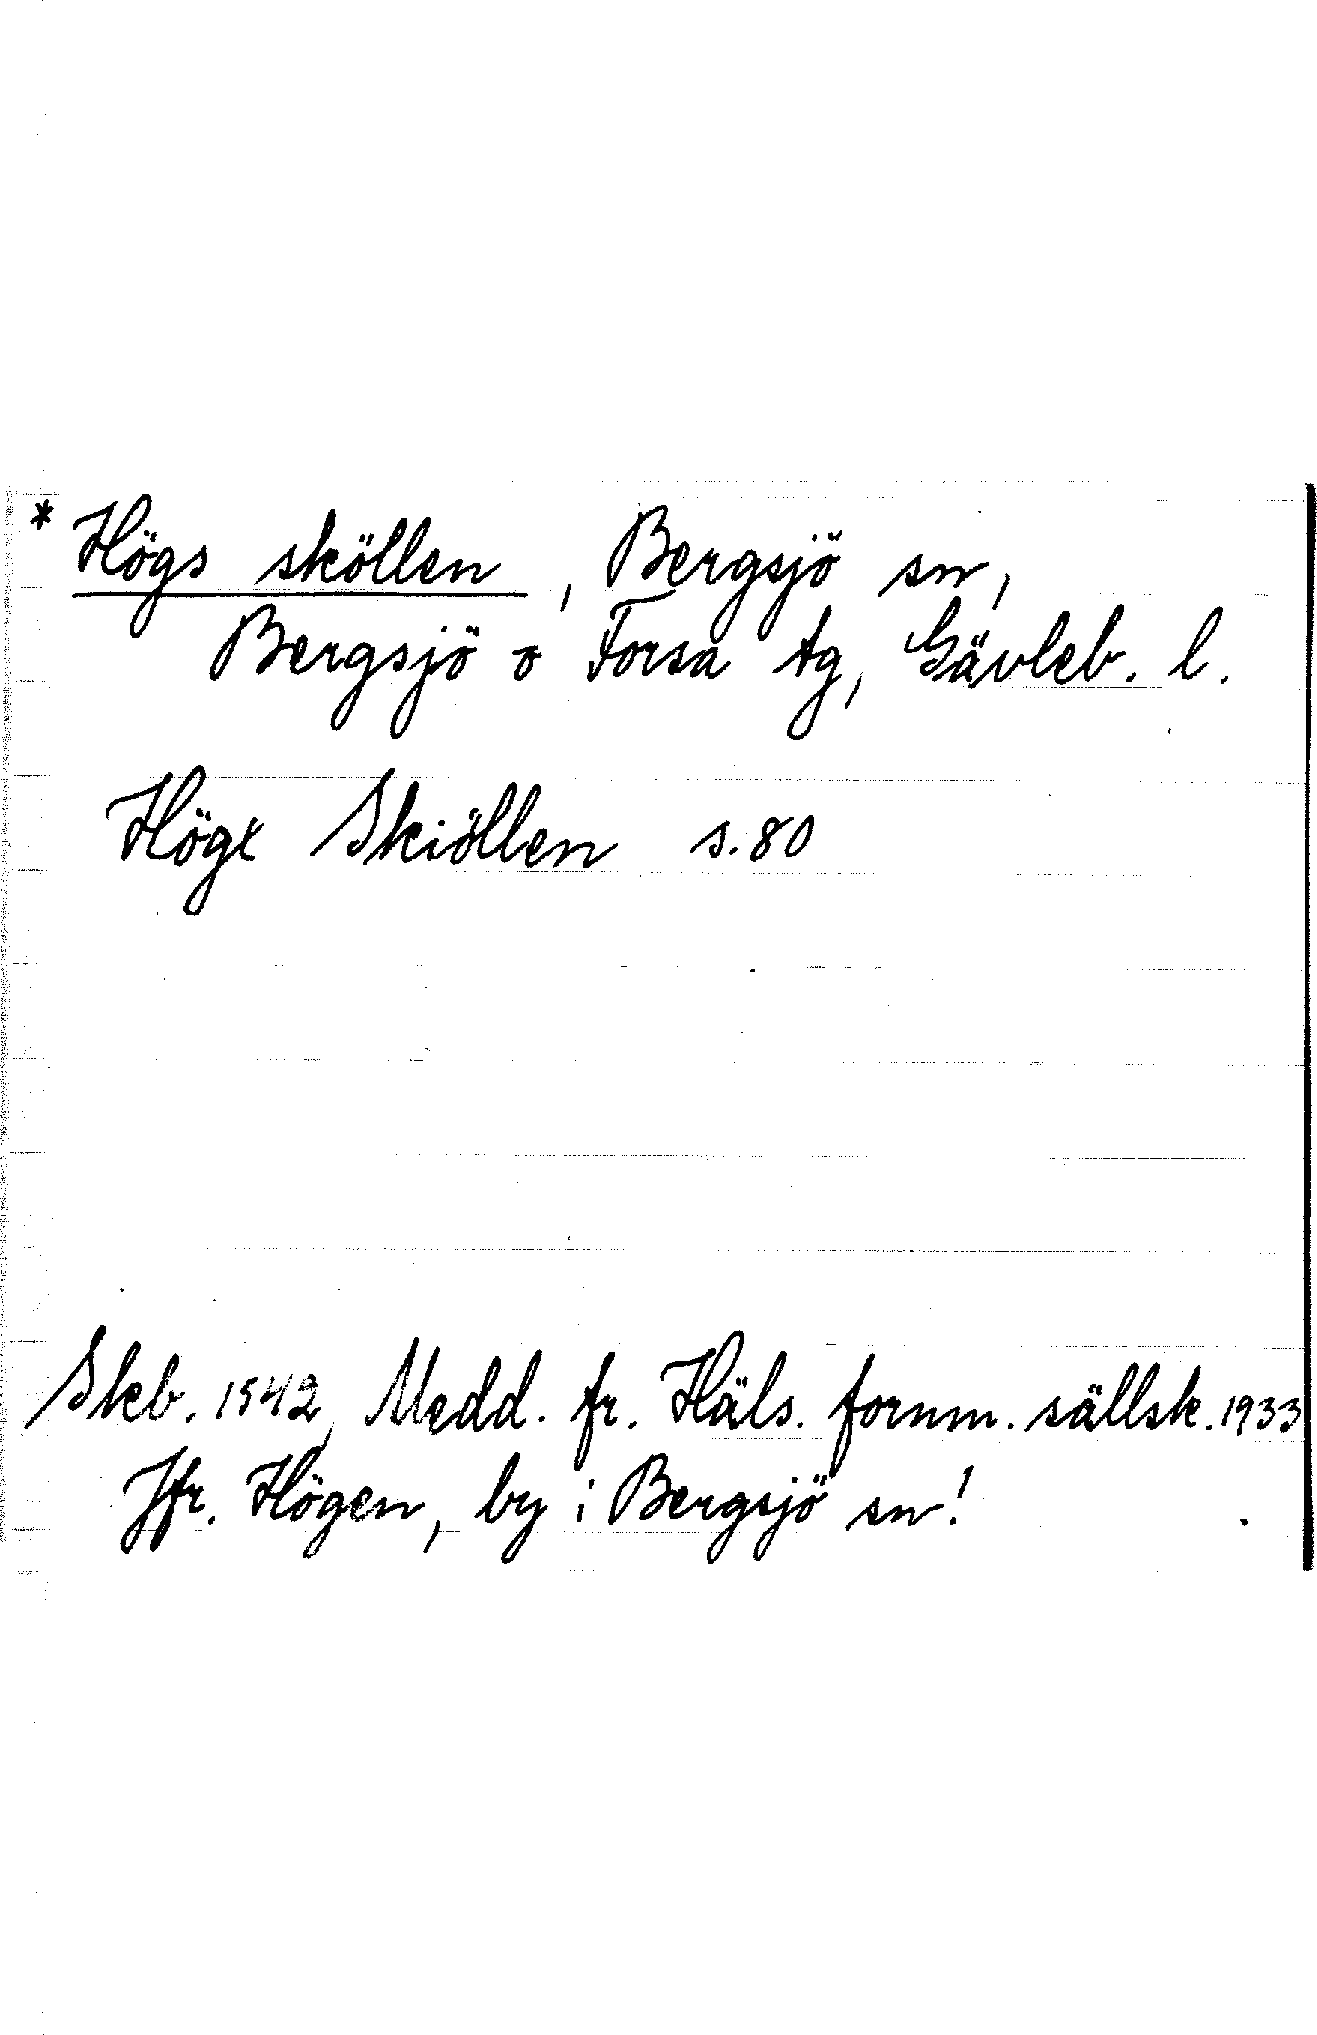 * Högs sköllen, Bergsjö sn,
Bergsjö o Forsa tg, Gävleb. l.
Högx Skiöllen s. 80
Skb. 1542, Medd. fr. Häls. fornm. sällsk. 1933
Jfr. Högen, by i Bergsjö sn!